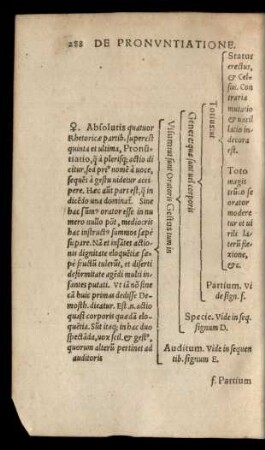 288 DE PRONVNTIATIONE.
♀. Absolutis quatuor
Rhetoricæ partib. superest
quinta et ultima, Pronū-
tiatio, q̃ à plerisq; actio di
citur. sed pri⁹ nomẽ à uoce,
sequẽs à gestu uidetur acci
pere. Hæc aũt pars est, q̃ in
dicẽdo una dominat̃. Sine
hac sũm⁹ orator esse in nu
mero nullo põt, mediocris
hac instruct⁹ summos sæpe
supare. Nã et infãtes actio-
nis dignitate eloquẽtiæ sæ-
pè fructũ tulerũt, et diserti
deformitate agẽdi multi in
fantes putati. Vt iã nõ sine
cã huic primas dedisse De-
mosth. dicatur. Est .n. actio
quasi corporis quædã elo-
quẽtia. Sũt itaq; in hac duo
spectãda, uox scil. et gest⁹,
quorum alterũ pertinet ad
auditoris
Vtilium sunt Oratoris Gestus tum in
Genere quæ sunt uel corporis
Totius ut
Status
erectus,
& Celsus.
Con
traria
mutatio
& uacil
latio in
decora
est.
Toto
magis
trũco se
orator
modere
tur et ui
rili la-
terũ fle-
xione,
&c.
Partium. Vi
de sign. f.
Specie. Vide in seq.
signum D.
Auditum. Vide in sequen
tib. signum E.
f. Partium